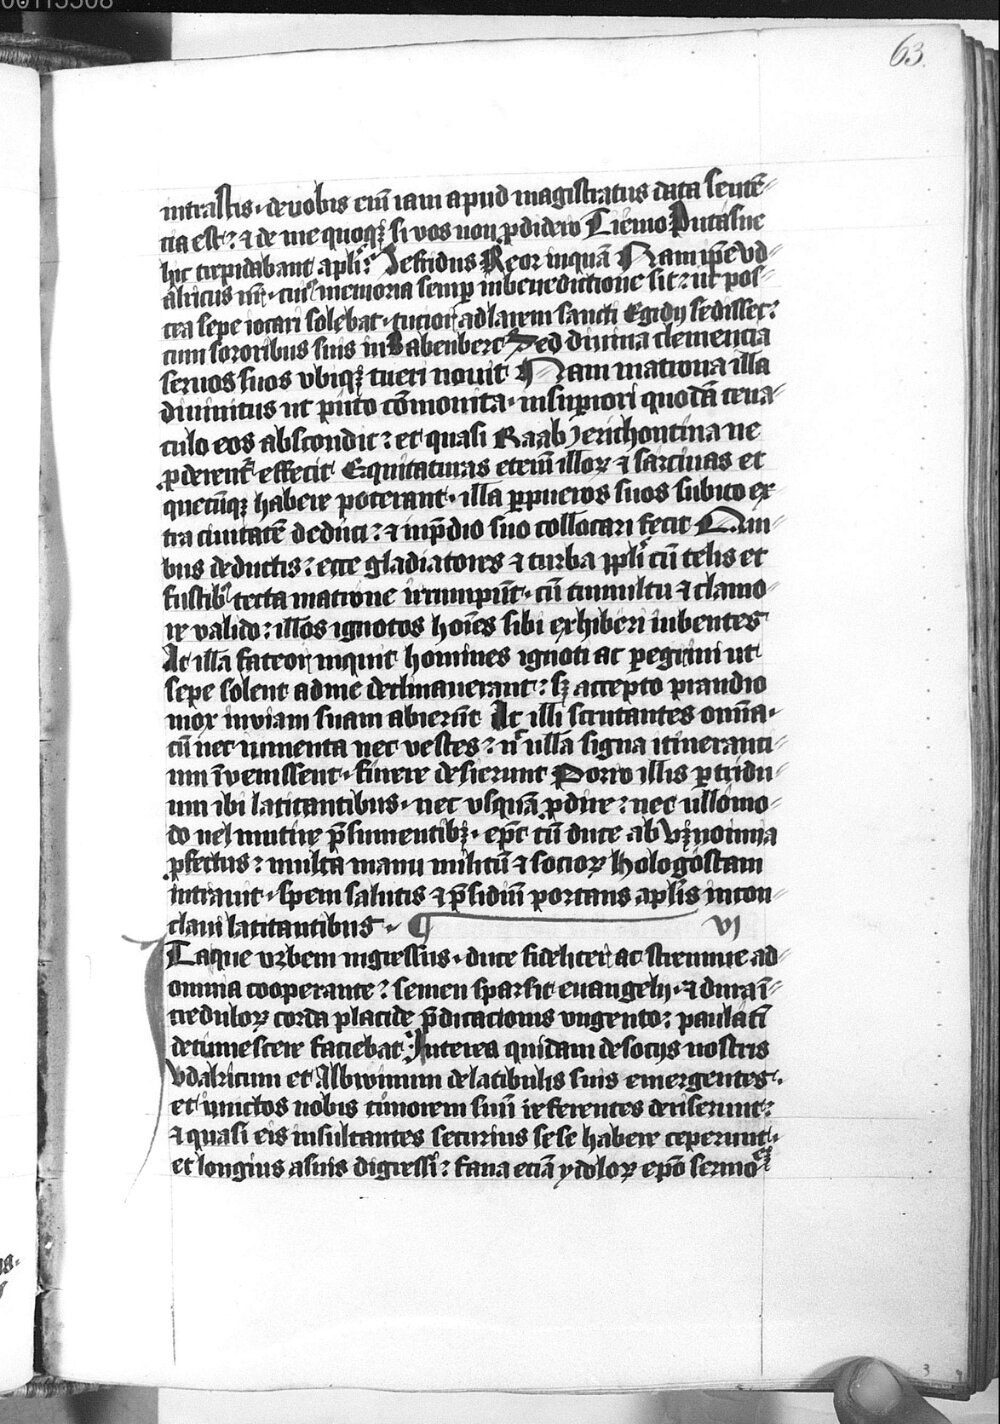 63.
intrastis · de vobis eni͞ iam apud magistratus data senten͞=
cia est: ⁊ de me quoqꝫ si vos non ꝑdidero Tiemo Putasne
hic trepidabant apl͞i: Sefridus Reor inquā Nam ip͞e vd=
alricus nr͞ · cuiꝰ memoria semꝑ in benedictione sit: ut pos=
tea sepe iocari solebat · tucior ad larem sancti Egidij sedisset:
cum sororibus suis in Babenberc Sed divina clemencia
servos suos vbiqꝫ tueri novit Nam matrona illa
divinitus ut puto co͞monita · in suꝑiori quodā cena=
culo eos abscondit: et quasi Raab Jerichontina ne
ꝑderent͛ effecit Equitaturas eteni͞ illoꝝ ⁊ sarcinas et
quecu͞qꝫ habere poterant · illa ꝑ pueros suos subito ex=
tra civitate͞ deduci: ⁊ in p̄dio suo collocari fecit Qui=
bus deductis: ecce gladiatores ⁊ turba ppl͞i cu͞ telis et
fustibꝰ tecta matrone irrumpu͞t · cu͞ tumultu ⁊ clamo=
re valido: illos ignotos ho͞ies sibi exhiberi iubentes
At illa fateor inquit homines ignoti ac peregrini ut
sepe solent ad me declinaverant: sꝫ accepto prandio
mox in viam suam abieru͞t At illi scrutantes omi͞a ·
cu͞ nec iumenta nec vestes: nͨ ulla signa itineranci=
um i͞venissent · finere desierunt Porro illis ꝑ tridu=
um ibi latitantibus · nec vsquā ꝑdire: nec ullo mo=
do vel mutire p̄sumentibꝫ · ep͞c cu͞ duce ab Vznoimia
ꝑfectus: multa manu militu͞ ⁊ socioꝝ hologostam
intravit · spem salutis ⁊ p̄sidiu͞ portans apl͞is in con=
clavi latitantibus · ¶ VI
Itaque vrbem ingressus · duce fideliter ac strennue ad=
omnia cooperante: semen sparsit euangelij · ⁊ dura i͞=
creduloꝝ corda placide p̄dicacionis vngento: paulati͞
detumescere faciebat Interea quidam de socijs nostris
vdalricum et Albwinum de latibulis suis emergentes ·
et iunctos nobis timorem suu͞ referentes deriserunt:
⁊ quasi eis insultantes securius sese habere ceperunt ·
et longius a suis digressi: fana eciā ydoloꝝ ep͞o sermo=